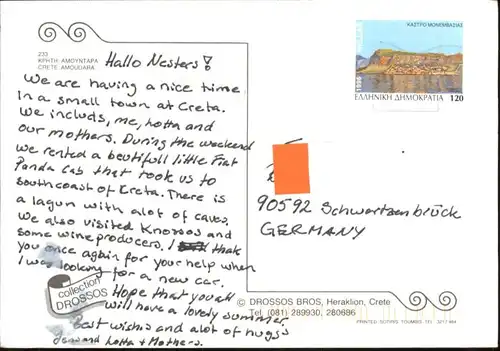 233
ΚΡΗΤΗ ΑΜΟΥΝΤΑΡΑ
CRETE AMOUDARA
Hallo Nesters!
We are having a nice time
in a small town at Creta.
We includs, me, Lotta and
our mothers. During the weekend
we rented a beutifull little Fiat
Panda Cab that took us to
southcoast of Creta. There is
a lagun with alot of caves.
We also visited Knossos and
some wineproducers. I thak
you once again for your help when
I was looking for a new car.
Hope that you all
will have a lovely summer.
Best wishis and alot of hugs
and Lotta + Mothers.
collection
DROSSOS
ΚΑΣΤΡΟ ΜΟΝΕΜΒΑΣΙΑΣ
1996
ΕΛΛΗΝΙΚΗ ΔΗΜΟΚΡΑΤΙΑ 120
90592 Schwartzenbrück
GERMANY
© DROSSOS BROS, Heraklion, Crete
Tel. (081) 289930, 280686